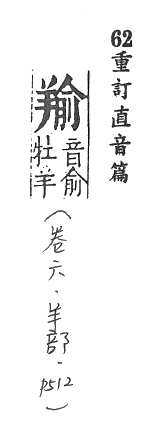 62重訂直音篇
羭音俞牡羊
(卷六·羊部·p512)